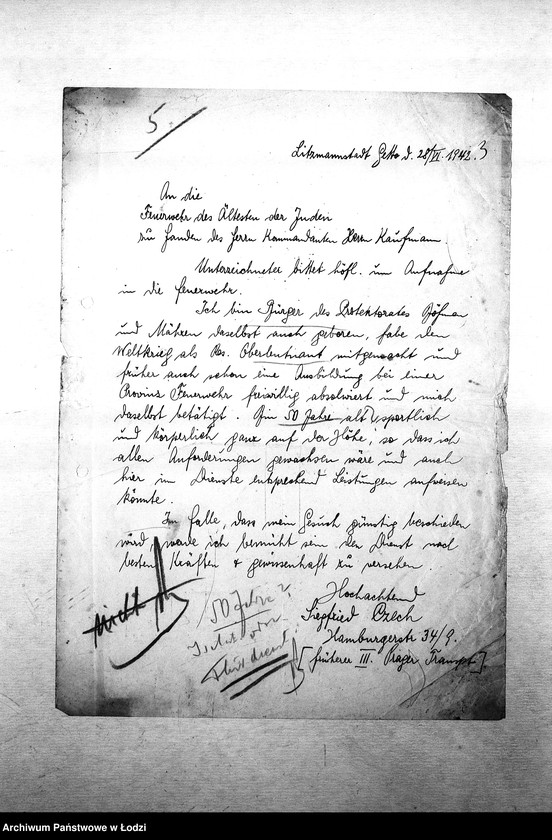 5.
Litzmannstadt Getto d. 28/VI. 1942.
An die
Feuerwehr des Ältesten der Juden
zu Handen des Herrn Kommandanten Herrn Kaufmann.
Unterzeichneter bittet höfl. um Aufnahme
in die Feuerwehr.
Ich bin Bürger des Protektorates Böhmen
und Mähren daselbst auch geboren, habe den
Weltkrieg als Res. Oberleutinant mitgemacht und
früher auch schon eine Ausbildung bei einer
Provinz Feuerwehr freiwillig absolviert und mich
daselbst betätigt. Bin 50 Jahre alt, sportlich
und körperlich ganz auf der Höhe, so dass ich
allen Anforderungen gewachsen wäre und auch
hier im Dienste entsprechend Leistungen aufweisen
könnte.
Im Falle, dass mein Gesuch günstig beschieden
wird, werde ich bemüht sein den Dienst nach
besten Kräften & gewissenhaft zu versehen.
Hochachtend
Siegfried Czech
Hamburgerstr 34/9.
[früherer III. Prager Transpt.]
nicht
50 Jahre?